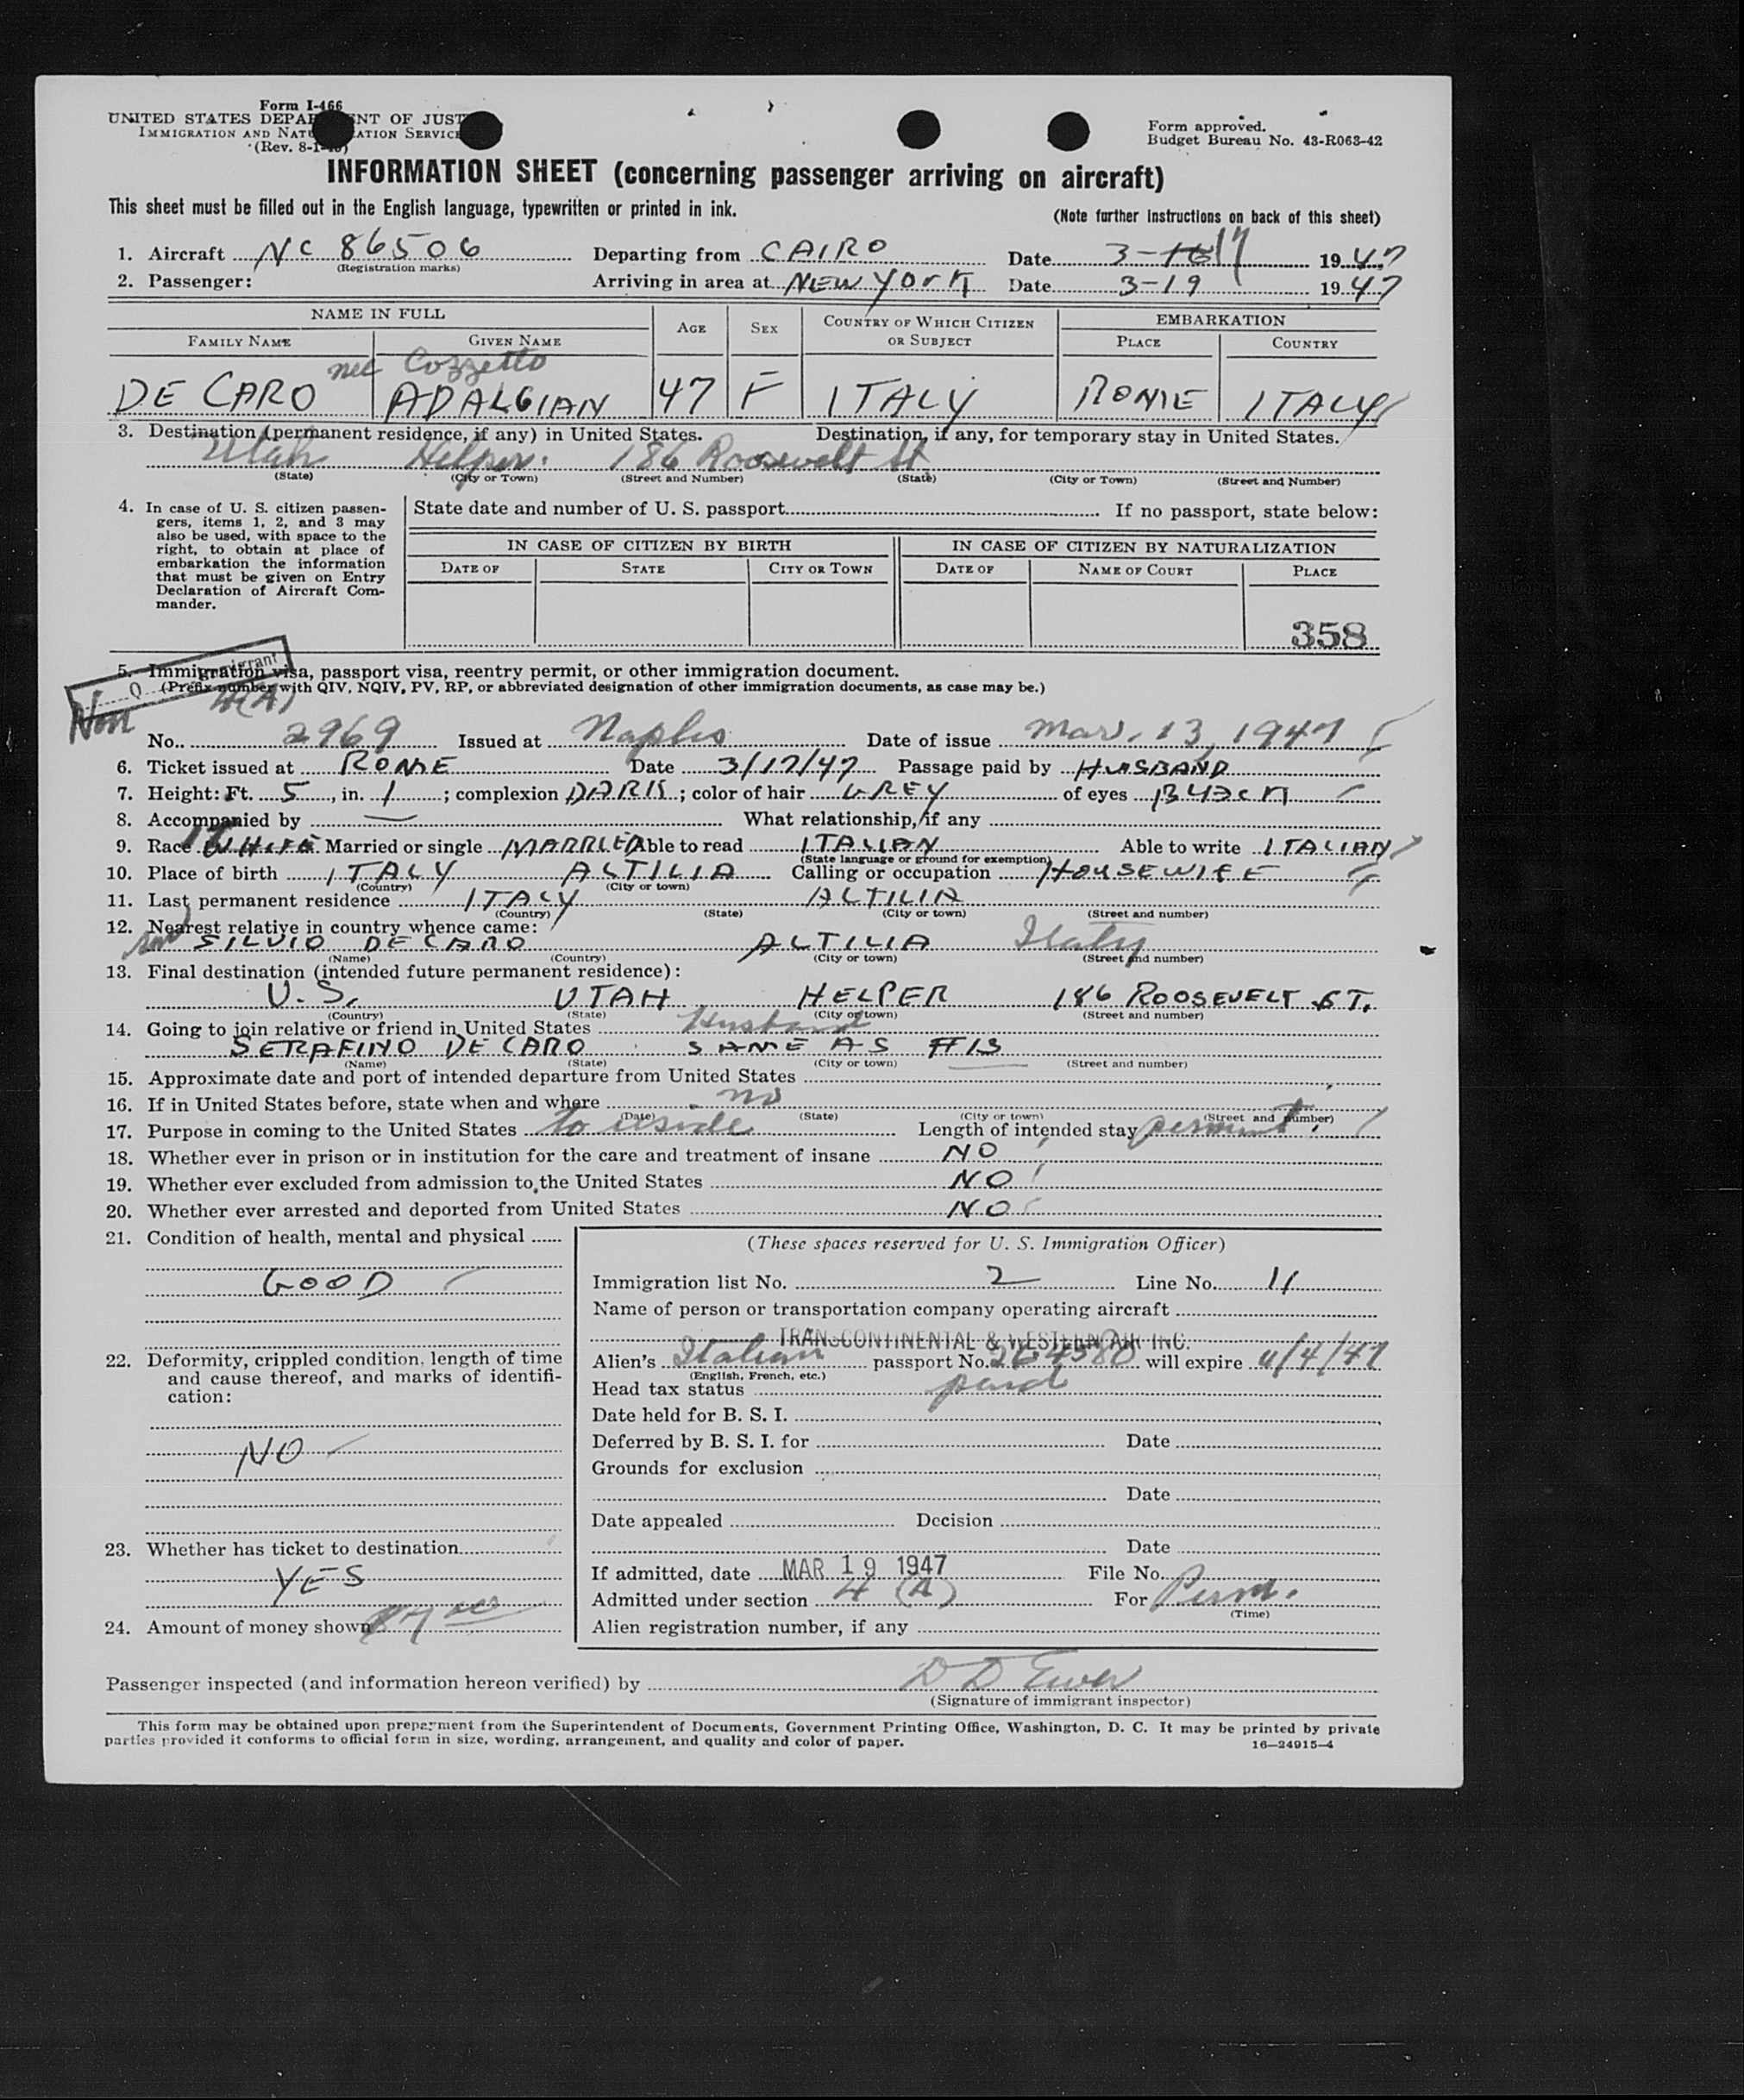 Form I-466
UNITED STATES DEPA NT OF JUST
IMMIGRATION AND NATU ATION SERVICE
(Rev. 8-1- )
Form approved.
Budget Bureau No. 43-R063-42
INFORMATION SHEET (concerning passenger arriving on aircraft)
This sheet must be filled out in the English language, typewritten or printed in ink.
(Note further instructions on back of this sheet)
1. Aircraft NC 86506 Departing from CAIRO Date 3- 17 1947
(Registration marks)
2. Passenger: Arriving in area at NEW YORK Date 3-19 1947
NAME IN FULL AGE SEX COUNTRY OF WHICH CITIZEN OR SUBJECT EMBARKATION
FAMILY NAME GIVEN NAME PLACE COUNTRY
nee Cozzetto
DE CARO ADALGIAN 47 F ITALY ROME ITALY
3. Destination (permanent residence, if any) in United States. Destination, if any, for temporary stay in United States.
Utah Helper. 186 Roosevelt St
(State) (City or Town) (Street and Number) (State) (City or Town) (Street and Number)
4. In case of U. S. citizen passen-
gers, items 1, 2, and 3 may
also be used, with space to the
right, to obtain at place of
embarkation the information
that must be given on Entry
Declaration of Aircraft Com-
mander.
State date and number of U. S. passport If no passport, state below:
IN CASE OF CITIZEN BY BIRTH IN CASE OF CITIZEN BY NATURALIZATION
DATE OF STATE CITY OR TOWN DATE OF NAME OF COURT PLACE
358
5. Immigration visa, passport visa, reentry permit, or other immigration document.
(Prefix number with QIV, NQIV, PV, RP, or abbreviated designation of other immigration documents, as case may be.)
Non 4(A)
No. 2969 Issued at Naples Date of issue Mar. 13, 1947
6. Ticket issued at ROME Date 3/17/47 Passage paid by HUSBAND
7. Height: Ft. 5, in. 1; complexion DARK; color of hair GREY of eyes BLACK
8. Accompanied by — What relationship, if any
9. Race WHITE Married or single MARRIED Able to read ITALIAN Able to write ITALIAN
(State language or ground for exemption)
10. Place of birth ITALY ALTILIA Calling or occupation HOUSEWIFE
(Country) (City or town)
11. Last permanent residence ITALY ALTILIA
(Country) (State) (City or town) (Street and number)
12. Nearest relative in country whence came:
son SILVIO DE CARO ALTILIA Italy
(Name) (Country) (City or town) (Street and number)
13. Final destination (intended future permanent residence):
U.S. UTAH HELPER 186 ROOSEVELT ST.
(Country) (State) (City or town) (Street and number)
14. Going to join relative or friend in United States Husband
SERAFINO DE CARO SAME AS #13
(Name) (State) (City or town) (Street and number)
15. Approximate date and port of intended departure from United States
16. If in United States before, state when and where no
(Date) (State) (City or town) (Street and number)
17. Purpose in coming to the United States to reside Length of intended stay
18. Whether ever in prison or in institution for the care and treatment of insane NO
19. Whether ever excluded from admission to the United States NO
20. Whether ever arrested and deported from United States NO
21. Condition of health, mental and physical
GOOD
22. Deformity, crippled condition, length of time
and cause thereof, and marks of identifi-
cation:
NO
23. Whether has ticket to destination
YES
24. Amount of money shown
(These spaces reserved for U. S. Immigration Officer)
Immigration list No. 2 Line No. 11
Name of person or transportation company operating aircraft
TRANSCONTINENTAL & WESTERN AIR INC.
Alien's Italian passport No. 264580 will expire
(English, French, etc.)
Head tax status paid
Date held for B. S. I.
Deferred by B. S. I. for Date
Grounds for exclusion
Date
Date appealed Decision
Date
If admitted, date MAR 19 1947 File No.
Admitted under section 4 (A) For Perm.
(Time)
Alien registration number, if any
Passenger inspected (and information hereon verified) by
(Signature of immigrant inspector)
This form may be obtained upon prepayment from the Superintendent of Documents, Government Printing Office, Washington, D. C. It may be printed by private
parties provided it conforms to official form in size, wording, arrangement, and quality and color of paper.
16—24915-4